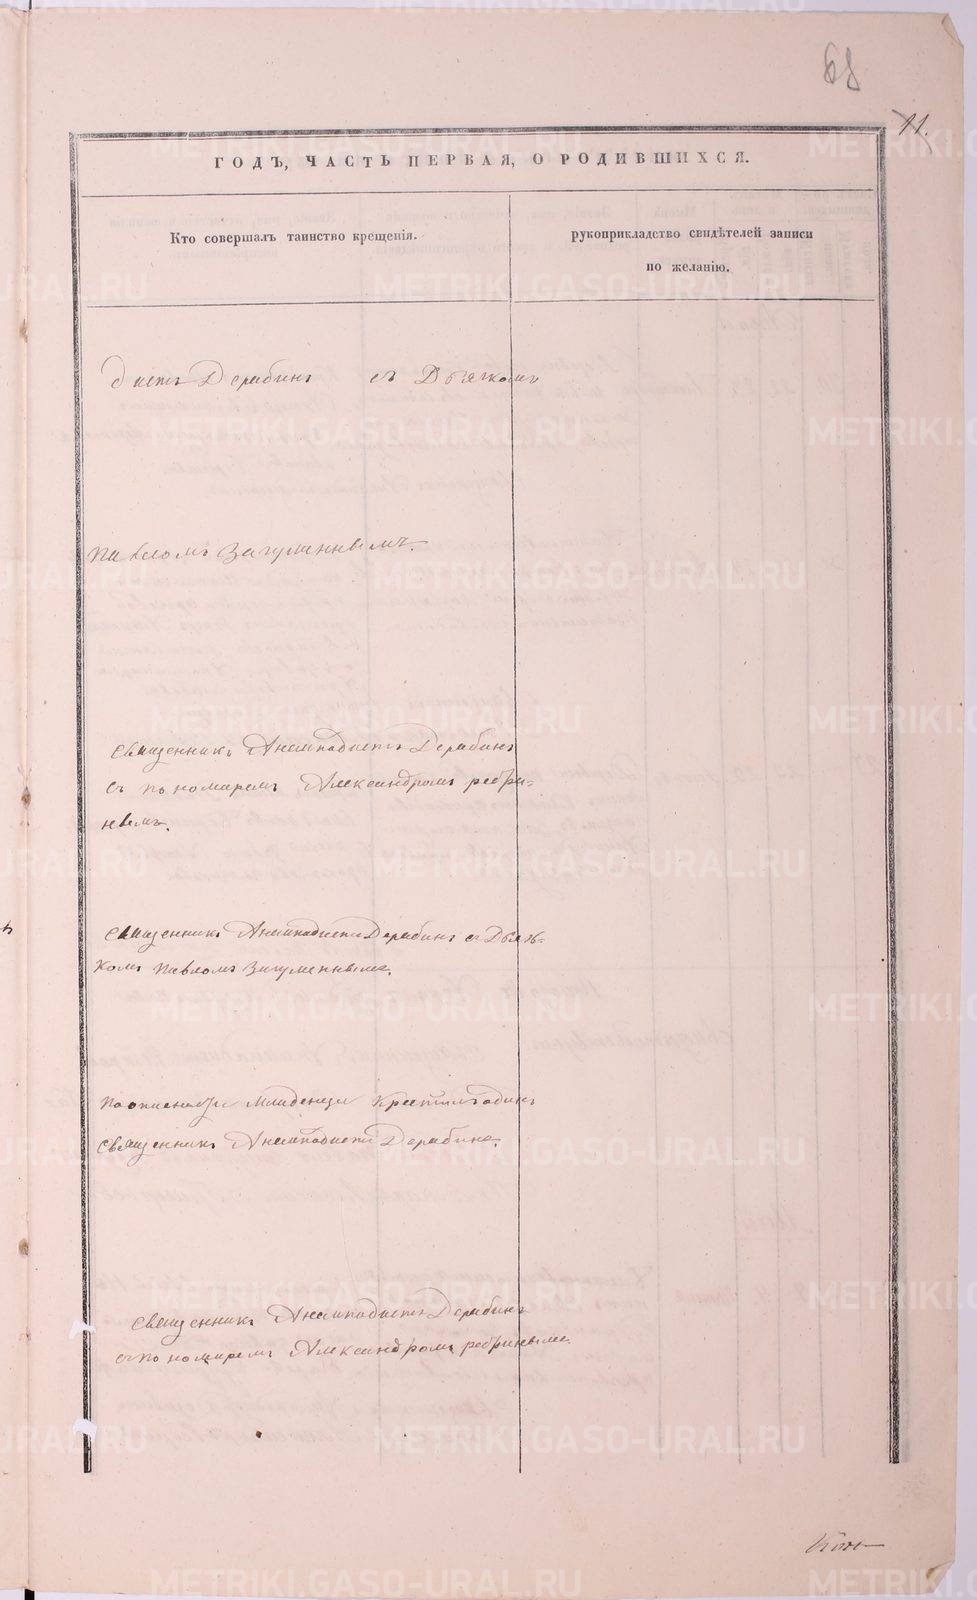 68
11.
ГОДЪ, ЧАСТЬ ПЕРВАЯ, О РОДИВШИХСЯ.
Кто совершалъ таинство крещенія.
рукоприкладство свидѣтелей записи
по желанію.
дистъ Дерябинъ съ Дьячкомъ
Павломъ Загуменнымъ.
Священникъ Анемподистъ Дерябинъ
съ пономаремъ Александромъ ребри-
нымъ.
Священникъ Анемподистъ Дерябинъ съ Дьяч-
комъ Павломъ Загуменнымъ.
Младенца Крестилъ одинъ
Священникъ Анемподистъ Дерябинъ.
Священникъ Анемподистъ Дерябинъ
съ пономаремъ Александромъ ребринымъ.
METRIKI.GASO-URAL.RU